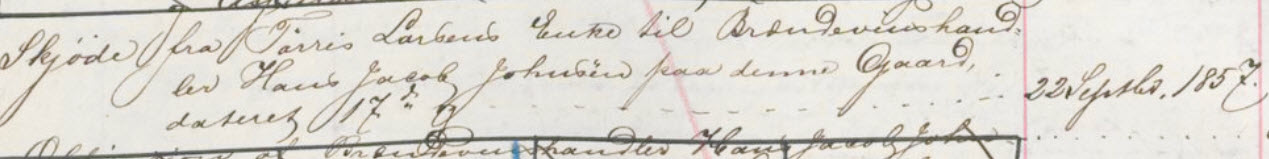 Skjøde fra Tørris Larsens Enke til Brændeviinshand-
ler Hans Jacob Johnsen paa denne Gaard,
dateret 17de 22 Septbr. 1857.
Brændeviinshandler Hans Jacob John